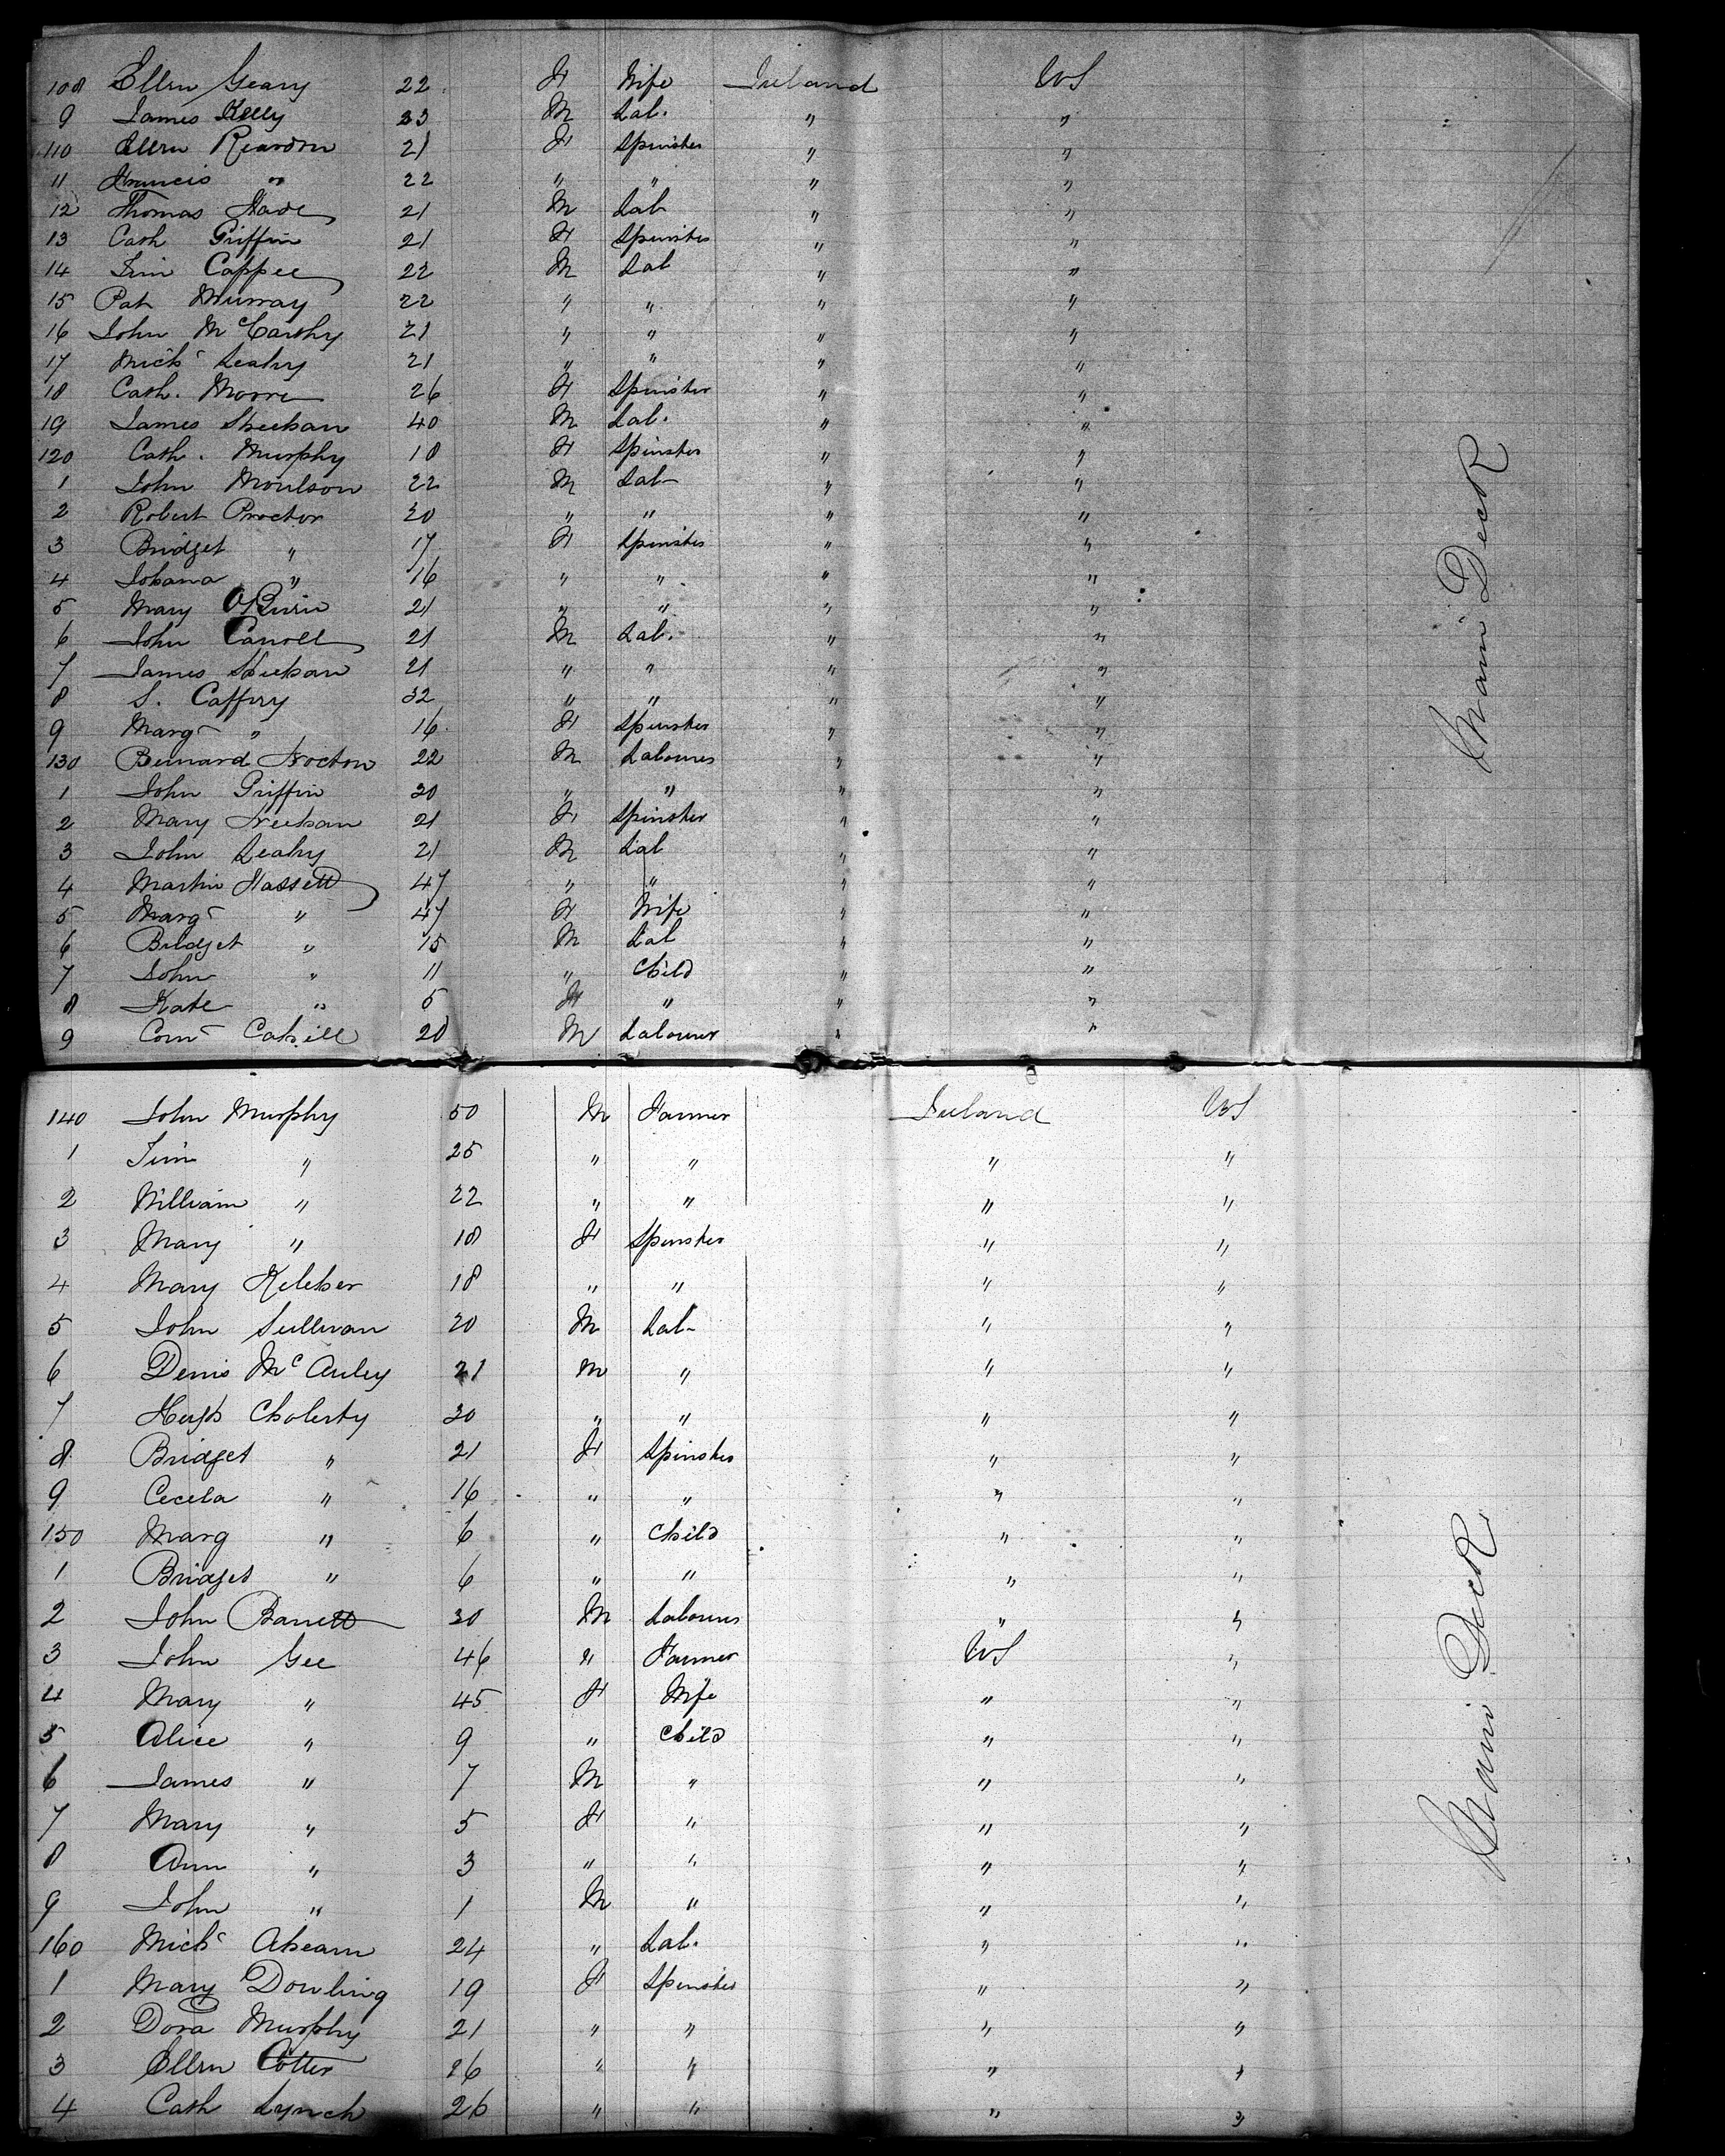 108 Ellen Geary 22 F Wife Ireland US
9 James Kelly 23 M Lab. " "
110 Ellen Reardon 21 F Spinster " "
11 Francis " 22 " " " "
12 Thomas Wade 21 M Lab " "
13 Cath Griffin 21 F Spinster " "
14 Tim Coppee 22 M Lab " "
15 Pat Murray 22 " " " "
16 John McCarthy 21 " " " "
17 Mich Leahy 21 " " " "
18 Cath. Moore 26 F Spinster " "
19 James Sheehan 40 M Lab. " "
120 Cath. Murphy 18 F Spinster " "
1 John Moulson 22 M Lab " "
2 Robert Proctor 20 " " " "
3 Bridget " 17 F Spinster " "
4 Johana " 16 " " " "
5 Mary O'Brien 21 " " " "
6 John Carroll 21 M Lab. " "
7 James Sheehan 21 " " " "
8 S. Caffery 32 " " " "
9 Marg " 16 F Spinster " "
130 Bernard Norton 22 M Labourer " "
1 John Griffin 20 " " " "
2 Mary Neehan 21 F Spinster " "
3 John Leahy 21 M Lab " "
4 Martin Hassett 47 " " " "
5 Marg " 47 F Wife " "
6 Bridget " 15 M Lab " "
7 John " 11 " Child " "
8 Kate " 5 F " " "
9 Corn Cahill 20 M Labourer " "
Main Deck
140 John Murphy 50 M Farmer Ireland US
1 Tim " 25 " " " "
2 William " 22 " " " "
3 Mary " 18 F Spinster " "
4 Mary Keleher 18 " " " "
5 John Sullivan 20 M Lab " "
6 Denis McAuley 21 M " " "
7 Hugh Choherty 30 " " " "
8 Bridget " 21 F Spinster " "
9 Cecela " 16 " " " "
150 Marg " 6 " Child " "
1 Bridget " 6 " " " "
2 John Barrett 30 M Labourer " "
3 John Gee 46 " Farmer US "
4 Mary " 45 F Wife " "
5 Alice " 9 " Child " "
6 James " 7 M " " "
7 Mary " 5 F " " "
8 Ann " 3 " " " "
9 John " 1 M " " "
160 Mich Ahearn 24 " Lab. " "
1 Mary Dowling 19 F Spinster " "
2 Dora Murphy 21 " " " "
3 Ellen Cotter 26 " " " "
4 Cath Lynch 26 " " " "
Main Deck